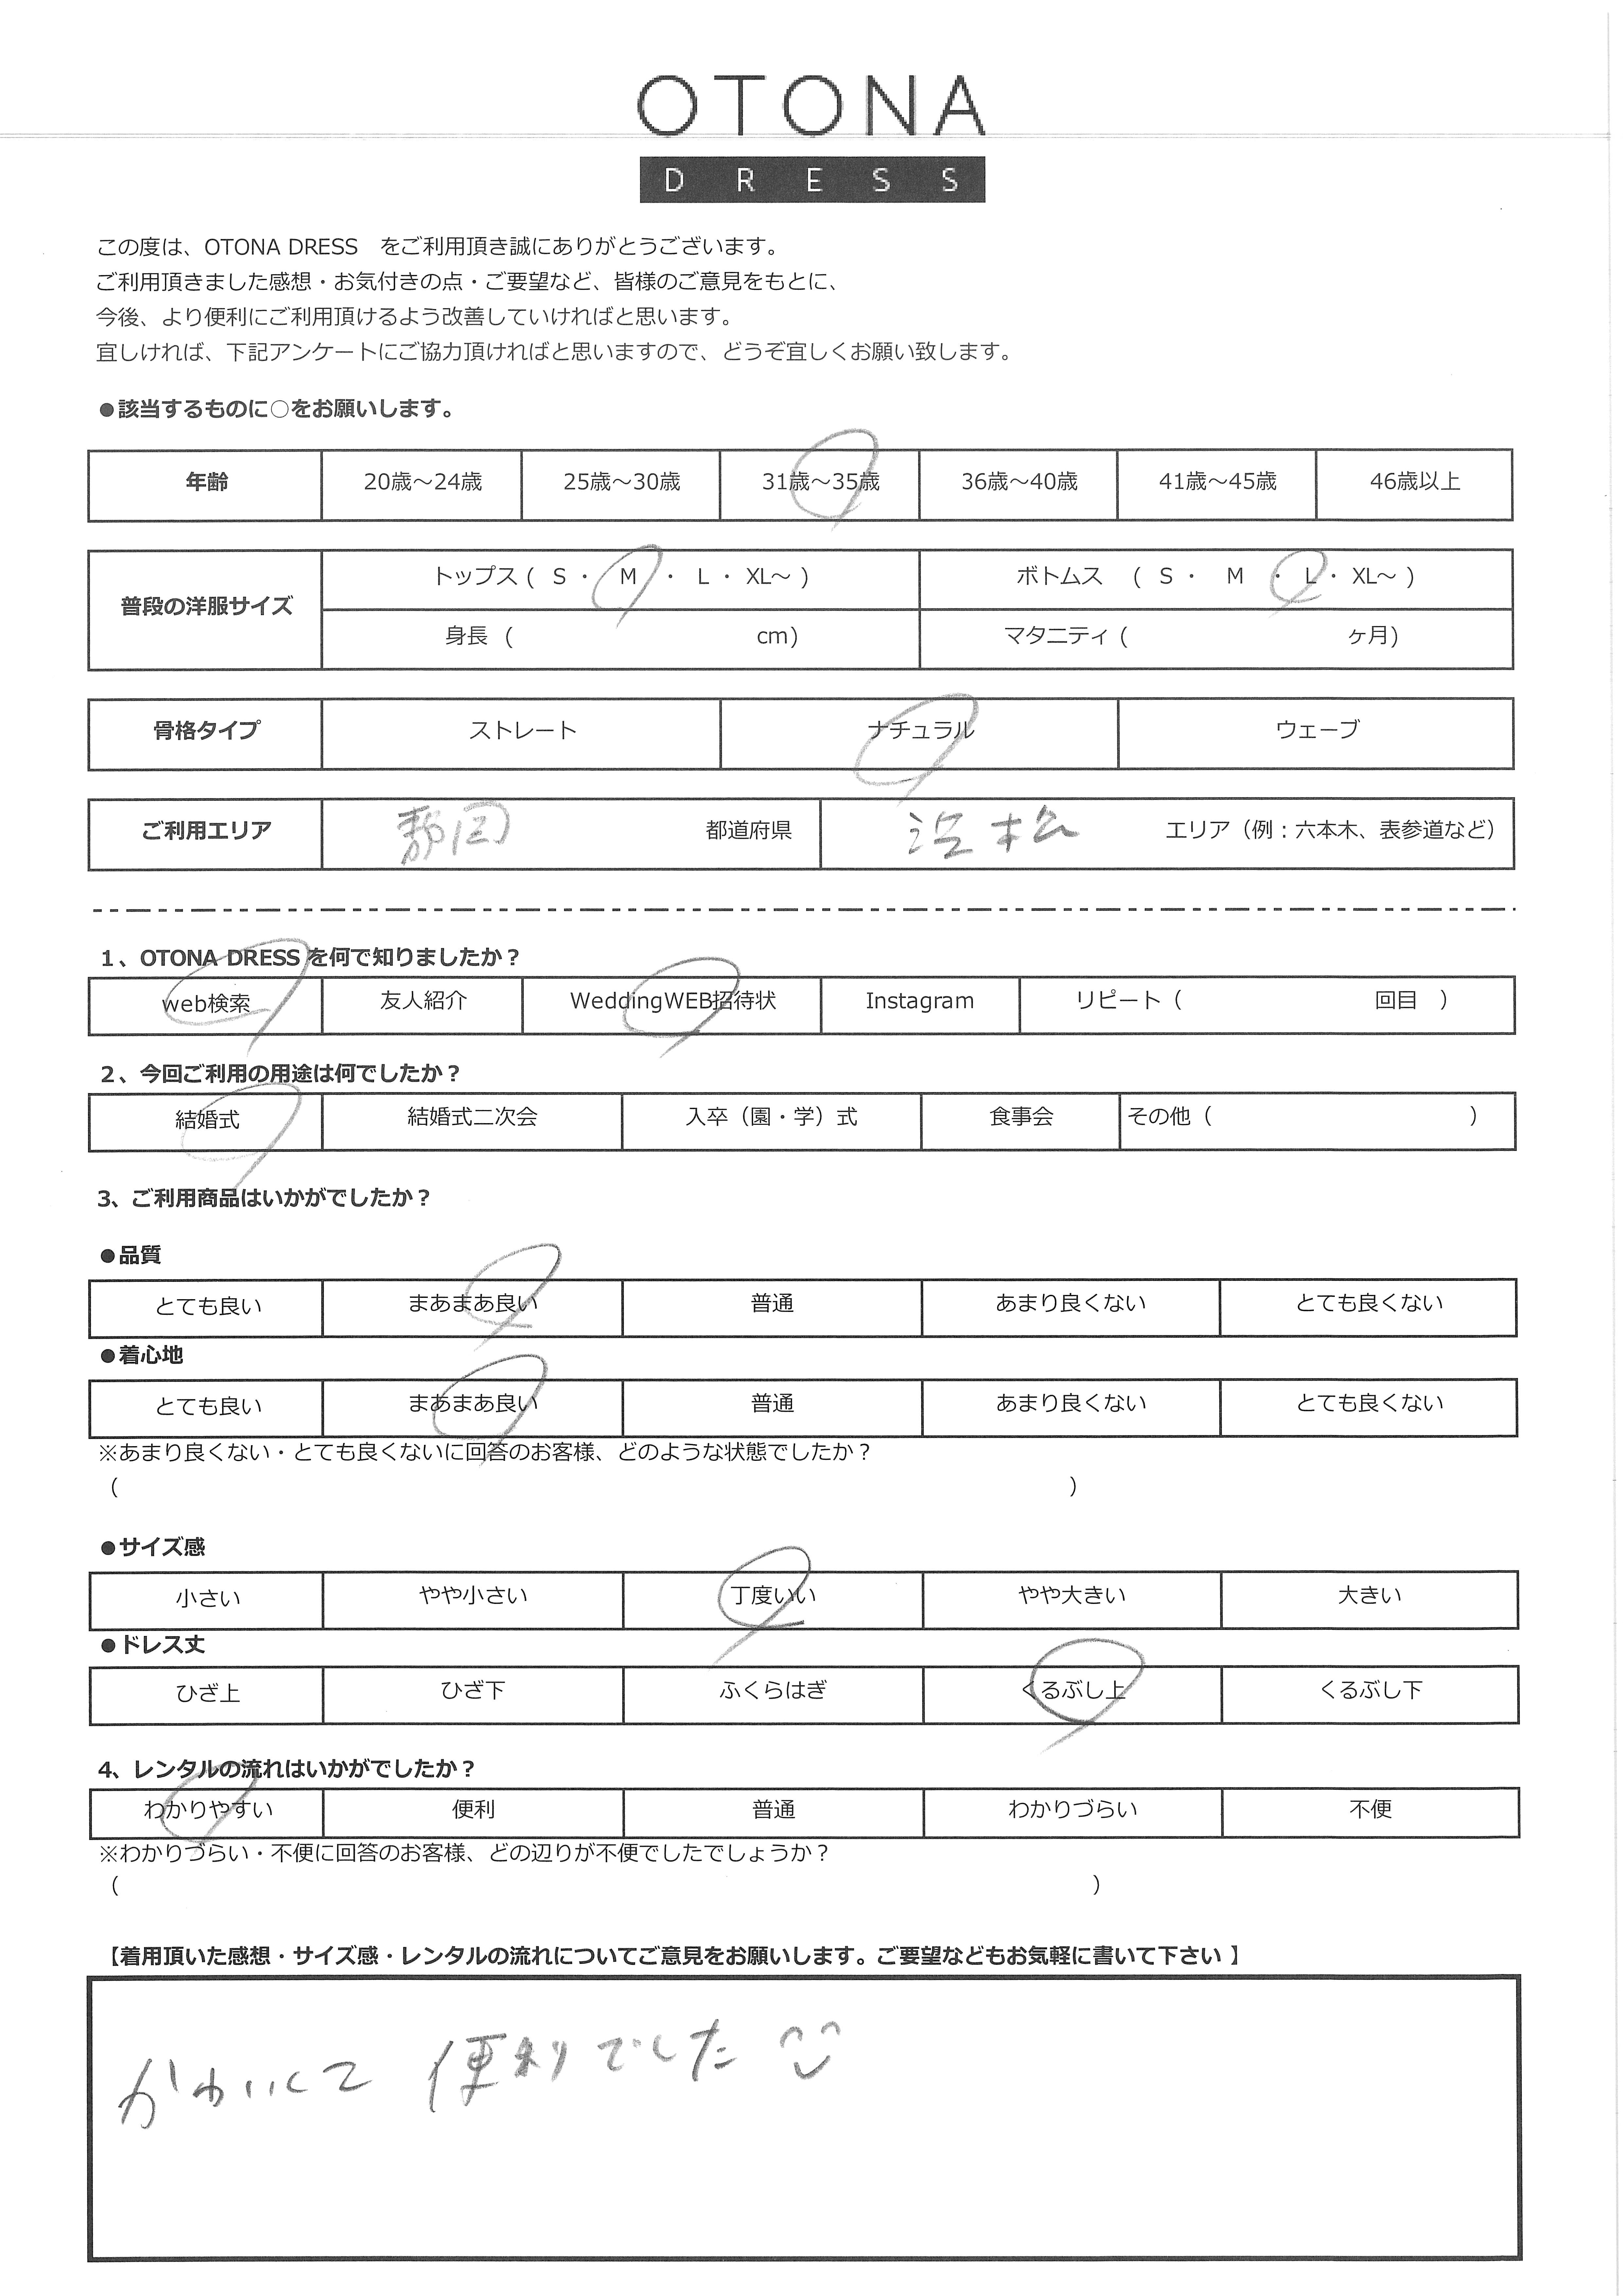 OTONA
DRESS
この度は、OTONA DRESS　をご利用頂き誠にありがとうございます。
ご利用頂きました感想・お気付きの点・ご要望など、皆様のご意見をもとに、
今後、より便利にご利用頂けるよう改善していければと思います。
宜しければ、下記アンケートにご協力頂ければと思いますので、どうぞ宜しくお願い致します。
●該当するものに○をお願いします。
年齢 20歳～24歳 25歳～30歳 31歳～35歳 36歳～40歳 41歳～45歳 46歳以上
普段の洋服サイズ トップス ( S ・ M ・ L ・ XL～ ) ボトムス ( S ・ M ・ L ・ XL～ )
身長 ( cm) マタニティ ( ヶ月)
骨格タイプ ストレート ナチュラル ウェーブ
ご利用エリア 静岡 都道府県 浜松 エリア（例：六本木、表参道など）
1、OTONA DRESS を何で知りましたか？
web検索 友人紹介 WeddingWEB招待状 Instagram リピート（ 回目 ）
2、今回ご利用の用途は何でしたか？
結婚式 結婚式二次会 入卒（園・学）式 食事会 その他（ ）
3、ご利用商品はいかがでしたか？
●品質
とても良い まあまあ良い 普通 あまり良くない とても良くない
●着心地
とても良い まあまあ良い 普通 あまり良くない とても良くない
※あまり良くない・とても良くないに回答のお客様、どのような状態でしたか？
（ ）
●サイズ感
小さい やや小さい 丁度いい やや大きい 大きい
●ドレス丈
ひざ上 ひざ下 ふくらはぎ くるぶし上 くるぶし下
4、レンタルの流れはいかがでしたか？
わかりやすい 便利 普通 わかりづらい 不便
※わかりづらい・不便に回答のお客様、どの辺りが不便でしたでしょうか？
（ ）
【着用頂いた感想・サイズ感・レンタルの流れについてご意見をお願いします。ご要望などもお気軽に書いて下さい 】
かわいくて 便利でした